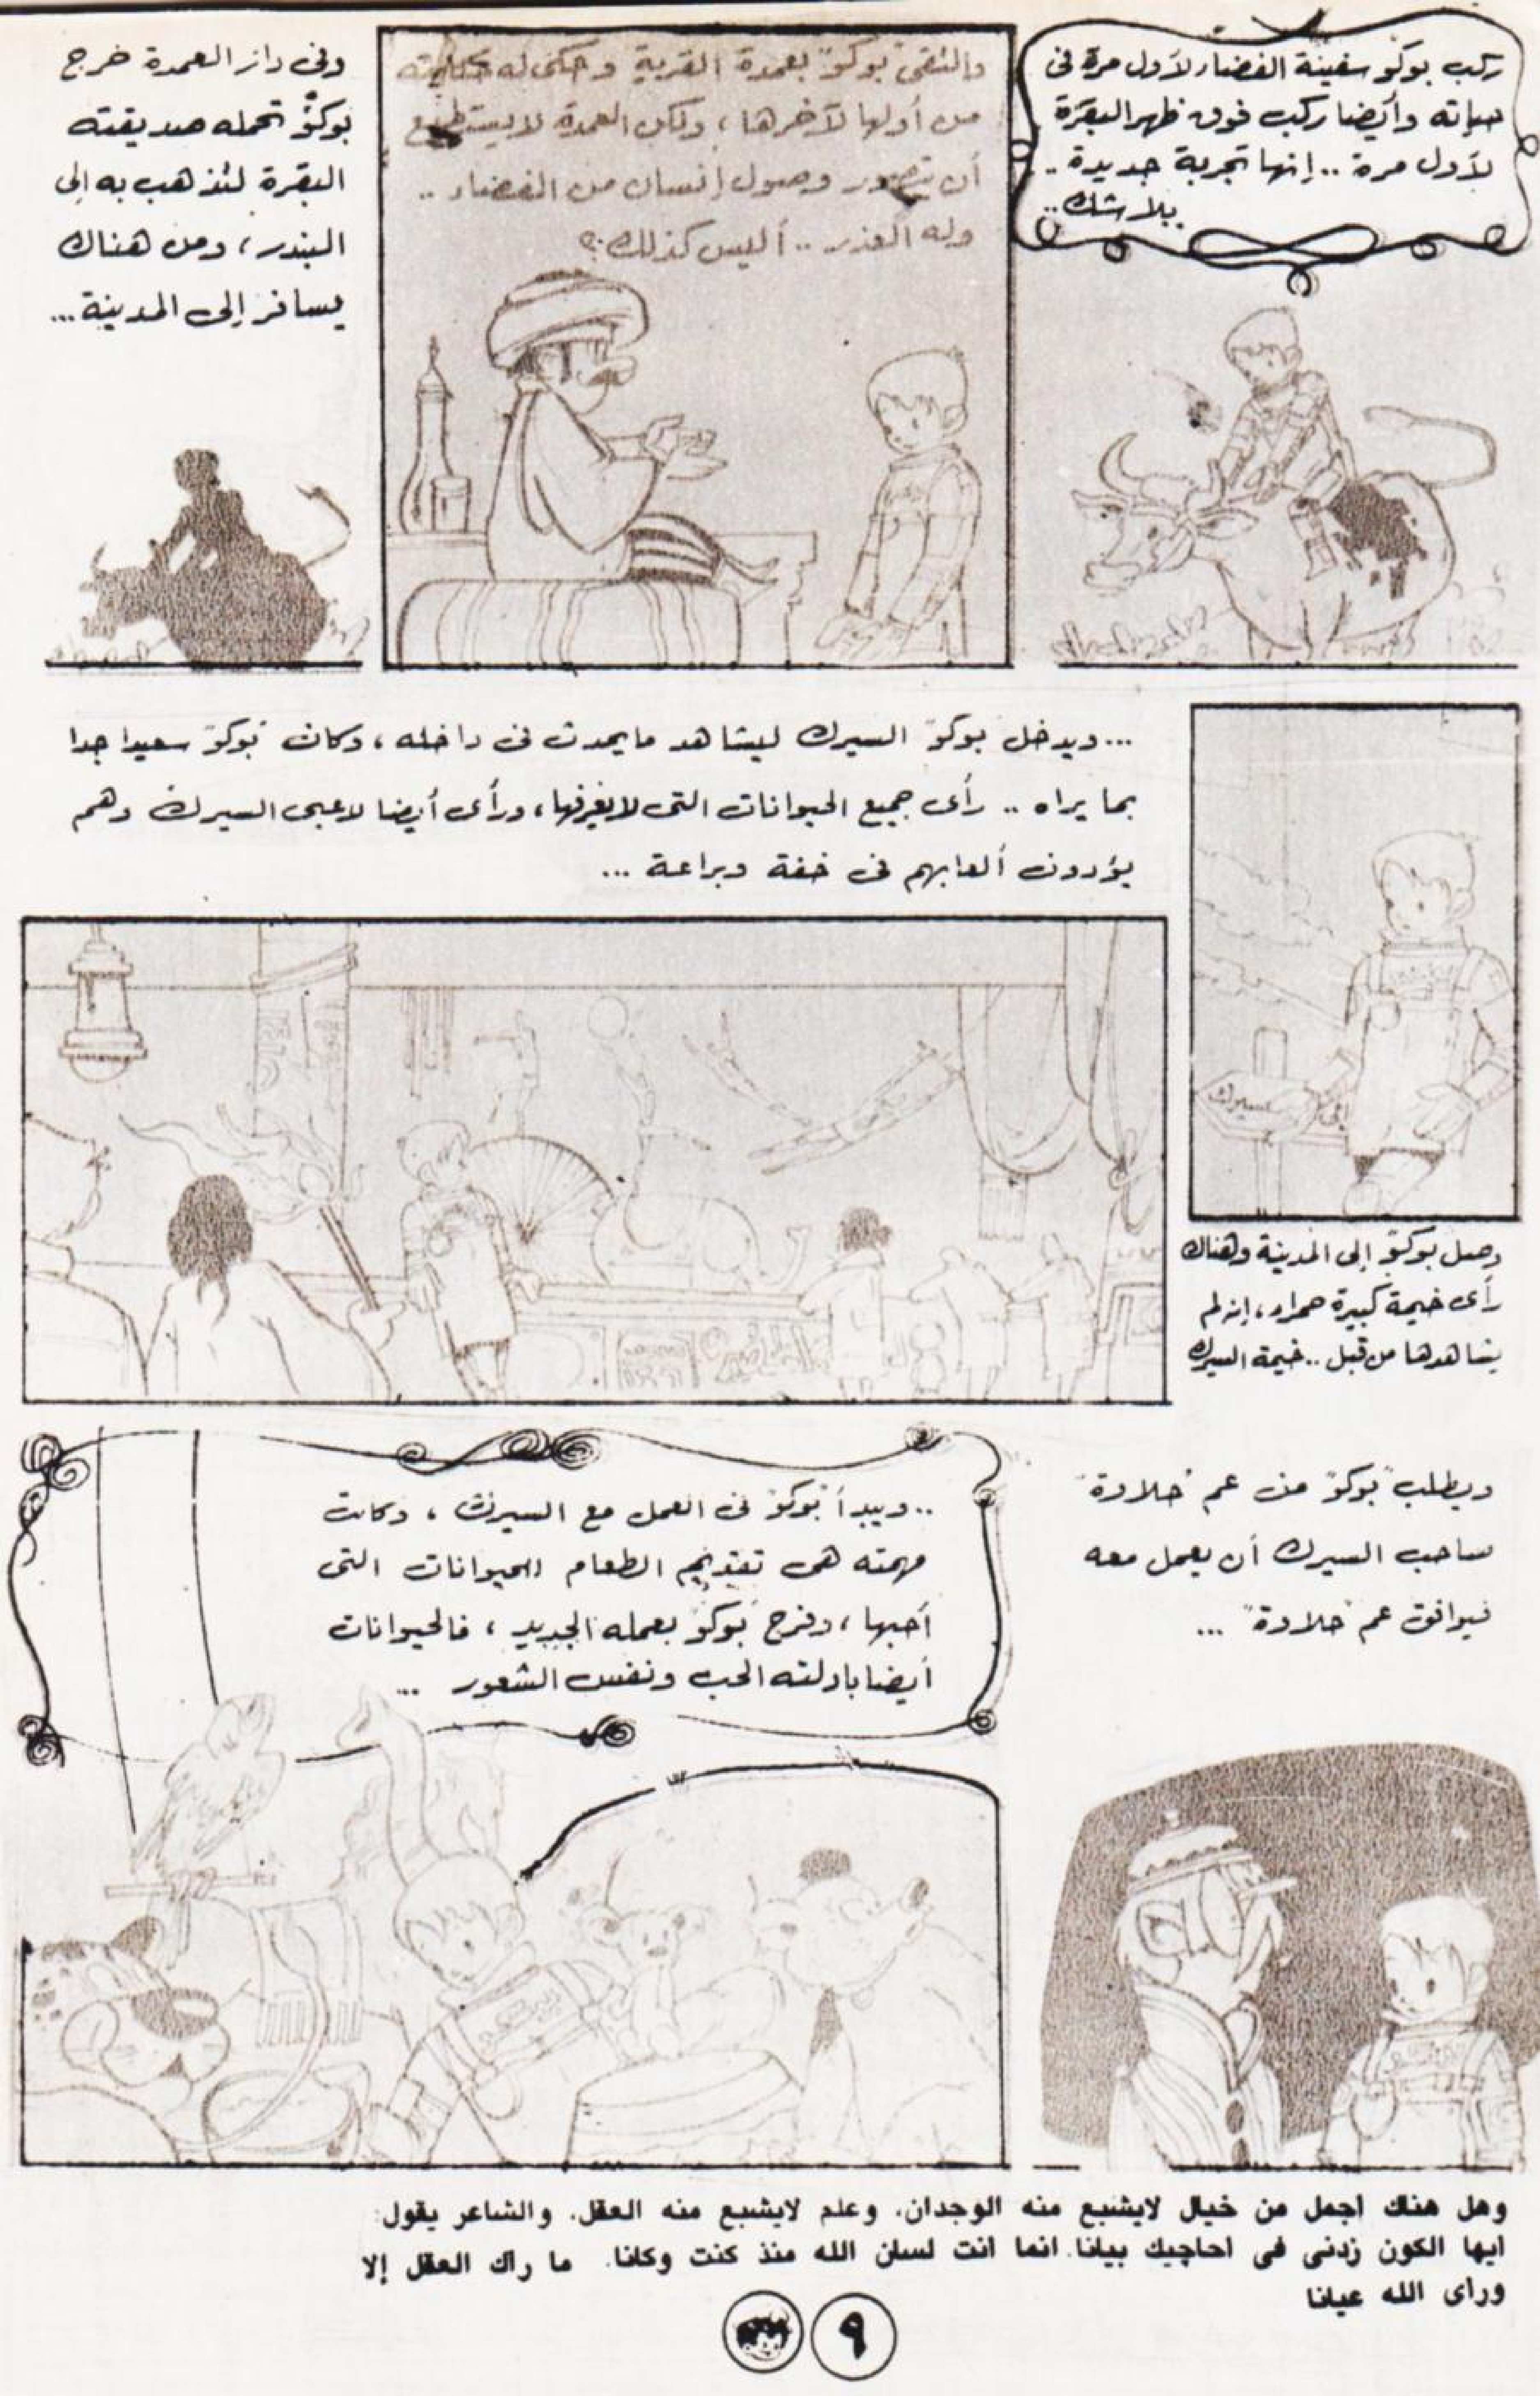 ركب بوكو سفينة الفضاء لأول مرة فى
حياته وأيضا ركب فوق ظهر البقرة
لأول مرة .. إنها تجربة جديدة ..
بلا شك ..
والتقى "بوكو" بعمدة القرية وحكى له حكايته
من أولها لآخرها ، ولكن العمدة لا يستطيع
أن يتصور وصول إنسان من الفضاء ..
وله العذر .. أليس كذلك ؟
وفى دار العمدة خرج
بوكو تحمله صديقته
البقرة لتذهب به إلى
البندر ، ومن هناك
يسافر إلى المدينة ...
إلى السيرك
وصل بوكو إلى المدينة وهناك
رأى خيمة كبيرة حمراء ، إنه لم
يشاهدها من قبل .. خيمة السيرك
... ويدخل بوكو السيرك ليشاهد ما يحدث فى داخله ، وكان بوكو سعيدا جدا
بما يراه .. رأى جميع الحيوانات التى لا يعرفها ، ورأى أيضا لاعبى السيرك وهم
يؤدون ألعابهم فى خفة وبراعة ...
ويطلب "بوكو" من عم "حلاوة"
صاحب السيرك أن يعمل معه
فيوافق عم "حلاوة" ...
.. ويبدأ بوكو فى العمل مع السيرك ، وكانت
مهمته هى تقديم الطعام للحيوانات التى
أحبها ، وفرح بوكو بعمله الجديد ، فالحيوانات
أيضا بادلته الحب ونفس الشعور ...
وهل هناك اجمل من خيال لايشبع منه الوجدان. وعلم لايشبع منه العقل. والشاعر يقول:
ايها الكون زدنى فى احاجيك بيانا. انما انت لسان الله منذ كنت وكانا. ما راك العقل إلا
وراى الله عيانا
٩